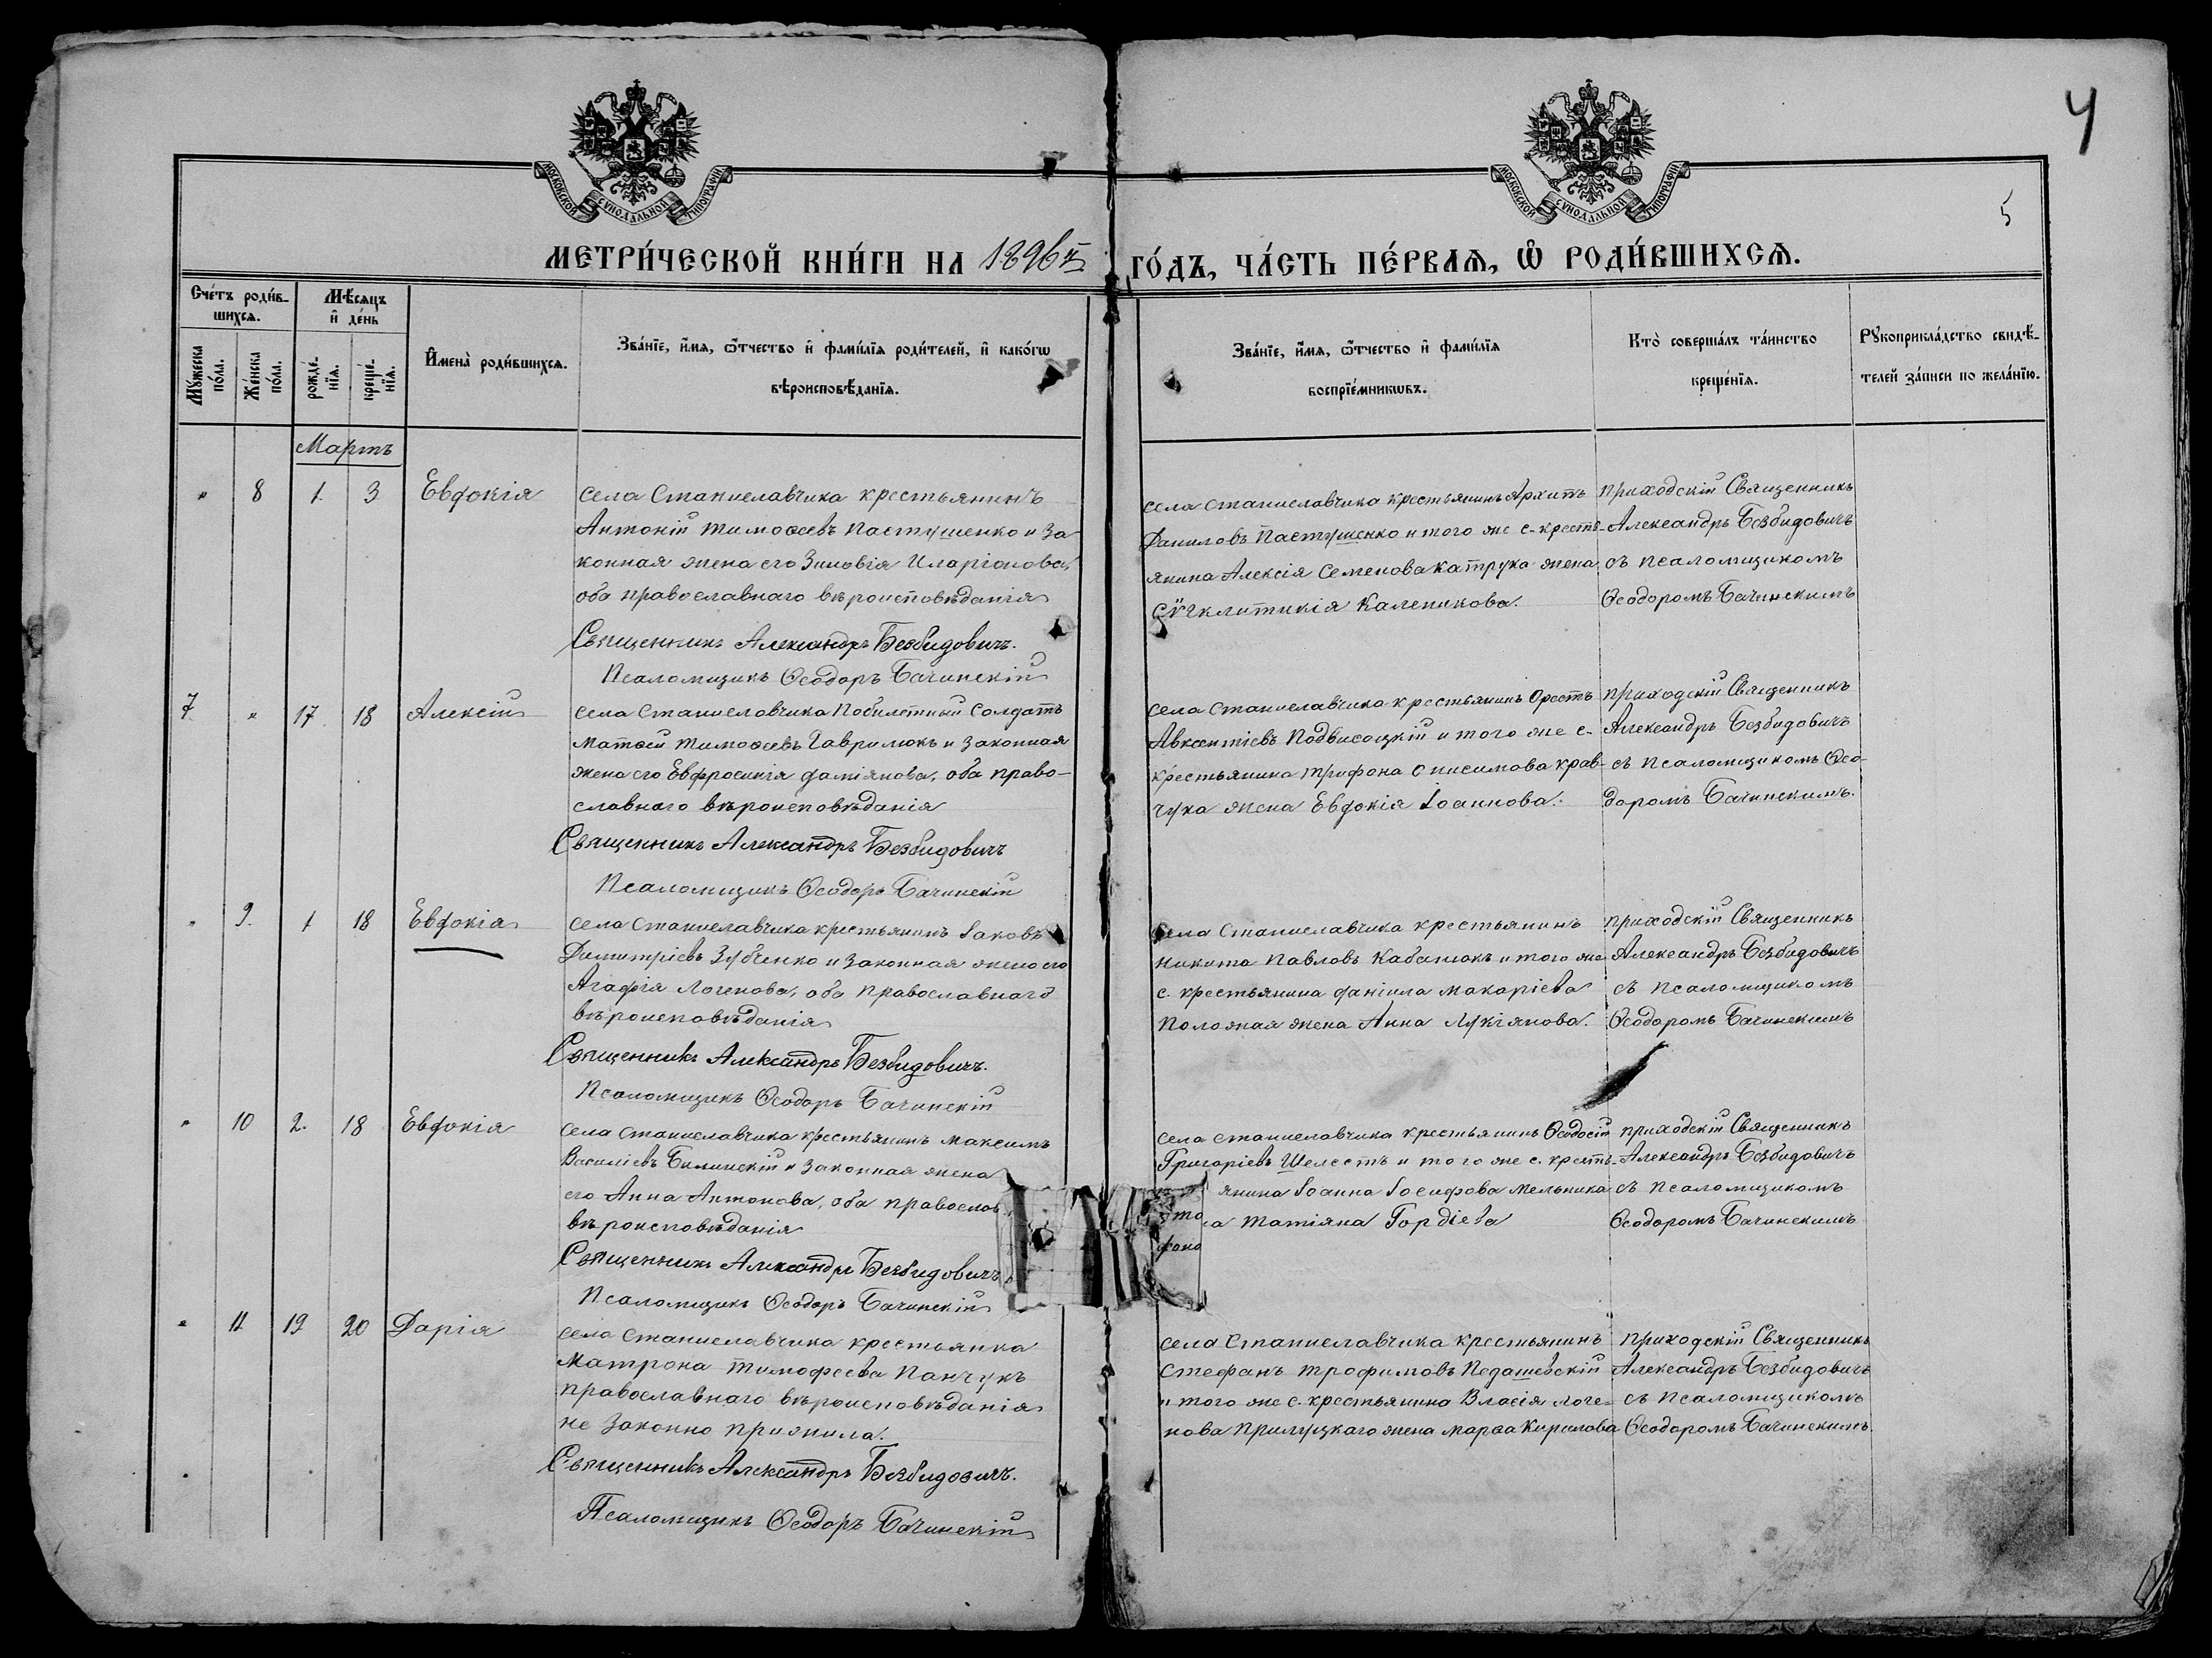 4
5
МОСКОВСКОЙ СУНОДАЛЬНОЙ ТИПОГРАФІИ
МОСКОВСКОЙ СУНОДАЛЬНОЙ ТИПОГРАФІИ
МЕТРИ́ЧЕСКОЙ КНИ́ГИ НА 1896й ГО́ДЪ, ЧА́СТЬ ПЕ́РВАЯ, Ѡ РОДИ́ВШИХСЯ.
Сче́тъ роди́в-
шихся.
Мѣсяцъ
и де́нь
Мꙋжеска
по́ла.
Же́нска
по́ла.
рожде́-
нїя.
креще́-
нїя.
Имена̀ роди́вшихся.
Зва́нїе, и́мя, ѻ́тчество и фами́лїя роди́телей, и како́гѡ
вѣроисповѣданїя.
Зва́нїе, и́мя, ѻ́тчество и фами́лїя
воспрїе́мникѡвъ.
Кто̀ соверша́лъ та́инство
креще́нїя.
Рꙋкоприкла́дство свидѣ-
телей за́писи по жела́нїю.
Мартъ
" 8 1 3 Евдокія
села Станиславчика крестьянинъ
Антоній Тимоѳеевъ Пастушенко и за-
конная жена его Зиновія Иларіонова,
оба православнаго вѣроисповѣданія
Священникъ Александръ Безвидовичъ.
Псаломщикъ Ѳеодоръ Бачинскій
села Станиславчика крестьянинъ Архипъ
Даниловъ Пастушенко и того же с. кресть-
янина Алексія Семенова Катрука жена
Сѵгклитикія Каленикова.
приходскій Священникъ
Александръ Безвидовичъ
съ псаломщикомъ
Ѳеодоромъ Бачинскимъ
7 " 17 18 Алексій
села Станиславчика Побилетный Солдатъ
Матѳей Тимоѳеевъ Гаврилюкъ и законная
жена его Евфросинія Даміянова, оба право-
славнаго вѣроисповѣданія
Священникъ Александръ Безвидовичъ
Псаломщикъ Ѳеодоръ Бачинскій
села Станиславчика крестьянинъ Орестъ
Авксентіевъ Подвисоцкій и того же с.
крестьянина Трифона Онисимова Крав-
чука жена Евдокія Іоаннова.
приходскій Священникъ
Александръ Безвидовичъ
съ псаломщикомъ Ѳео-
доромъ Бачинскимъ.
" 9. 1 18 Евдокія
села Станиславчика крестьянинъ Іаковъ
Димитріевъ Зубченко и законная жена его
Агафія Логенова, оба православнаго
вѣроисповѣданія
Священникъ Александръ Безвидовичъ.
Псаломщикъ Ѳеодоръ Бачинскій
села Станиславчика крестьянинъ
Никита Павловъ Кабанюкъ и того же
с. крестьянина Даніила Макаріева
Положая жена Анна Лукіянова.
приходскій Священникъ
Александръ Безвидовичъ
съ псаломщикомъ
Ѳеодоромъ Бачинскимъ
" 10 2. 18 Евдокія
села Станиславчика крестьянинъ Максимъ
Василіевъ Билинскій и законная жена
его Анна Антонова, оба правослов
вѣроисповѣданія
Священникъ Александръ Безвидовичъ
Псаломщикъ Ѳеодоръ Бачинскій
села Станиславчика крестьянинъ Ѳеодосій
Григоріевъ Шелестъ и того же с. кресть-
янина Іоанна Іосифова Мельника
а Татіяна Гордіева
приходскій Священникъ
Александръ Безвидовичъ
съ псаломщикомъ
Ѳеодоромъ Бачинскимъ
" 11 19 20 Дарія
села Станиславчика крестьянка
Матрона Тимофеева Панчукъ
православнаго вѣроисповѣданія
не законно прижила.
Священникъ Александръ Безвидовичъ.
Псаломщикъ Ѳеодоръ Бачинскій
села Станиславчика крестьянинъ
Стефанъ Трофимовъ Педашевскій
и того же с. крестьянина Власія Логе-
нова Прилуцкаго жена Марѳа Кирилова
приходскій Священникъ
Александръ Безвидовичъ
съ псаломщикомъ
Ѳеодоромъ Бачинскимъ.